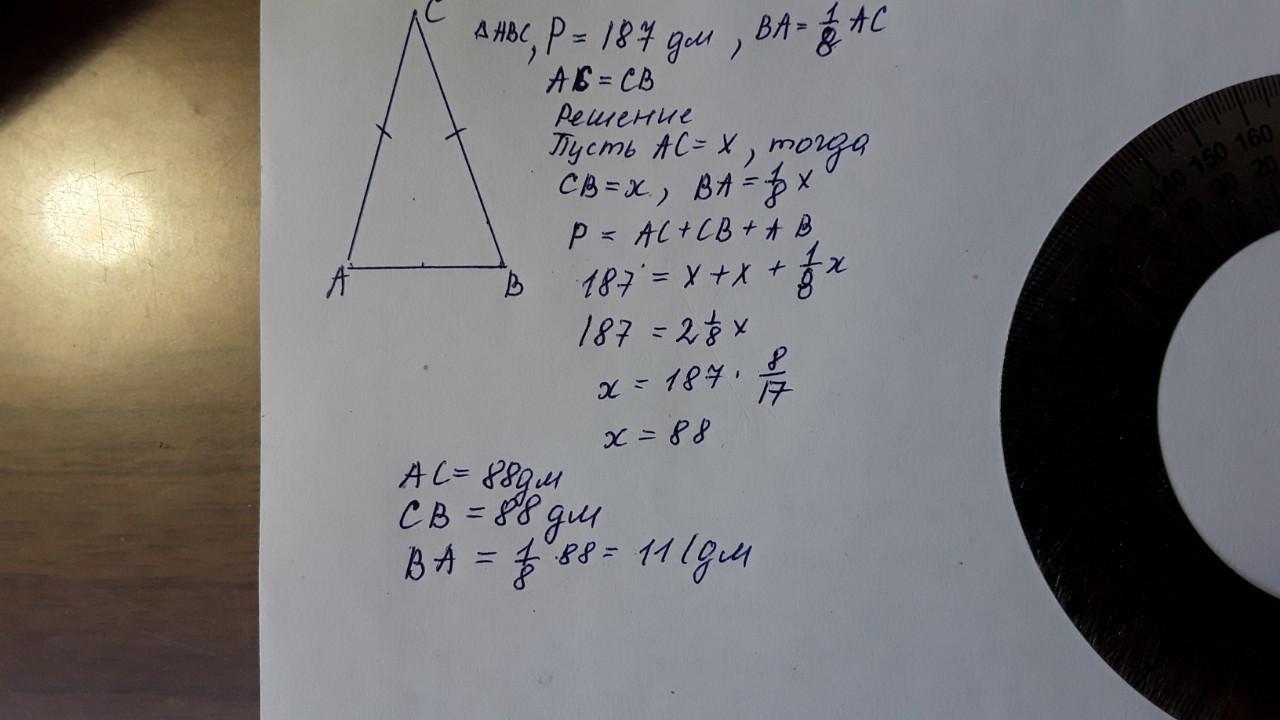 C
ΔABC, P = 187 дм, BA = 1/8 AC
AC = CB
Решение
Пусть AC = x, тогда
CB = x, BA = 1/8 x
P = AC + CB + AB
187 = x + x + 1/8 x
A B
187 = 2 1/8 x
x = 187 · 8/17
x = 88
AC = 88дм
CB = 88 дм
BA = 1/8 · 88 = 11 (дм
150 160
140 30 20